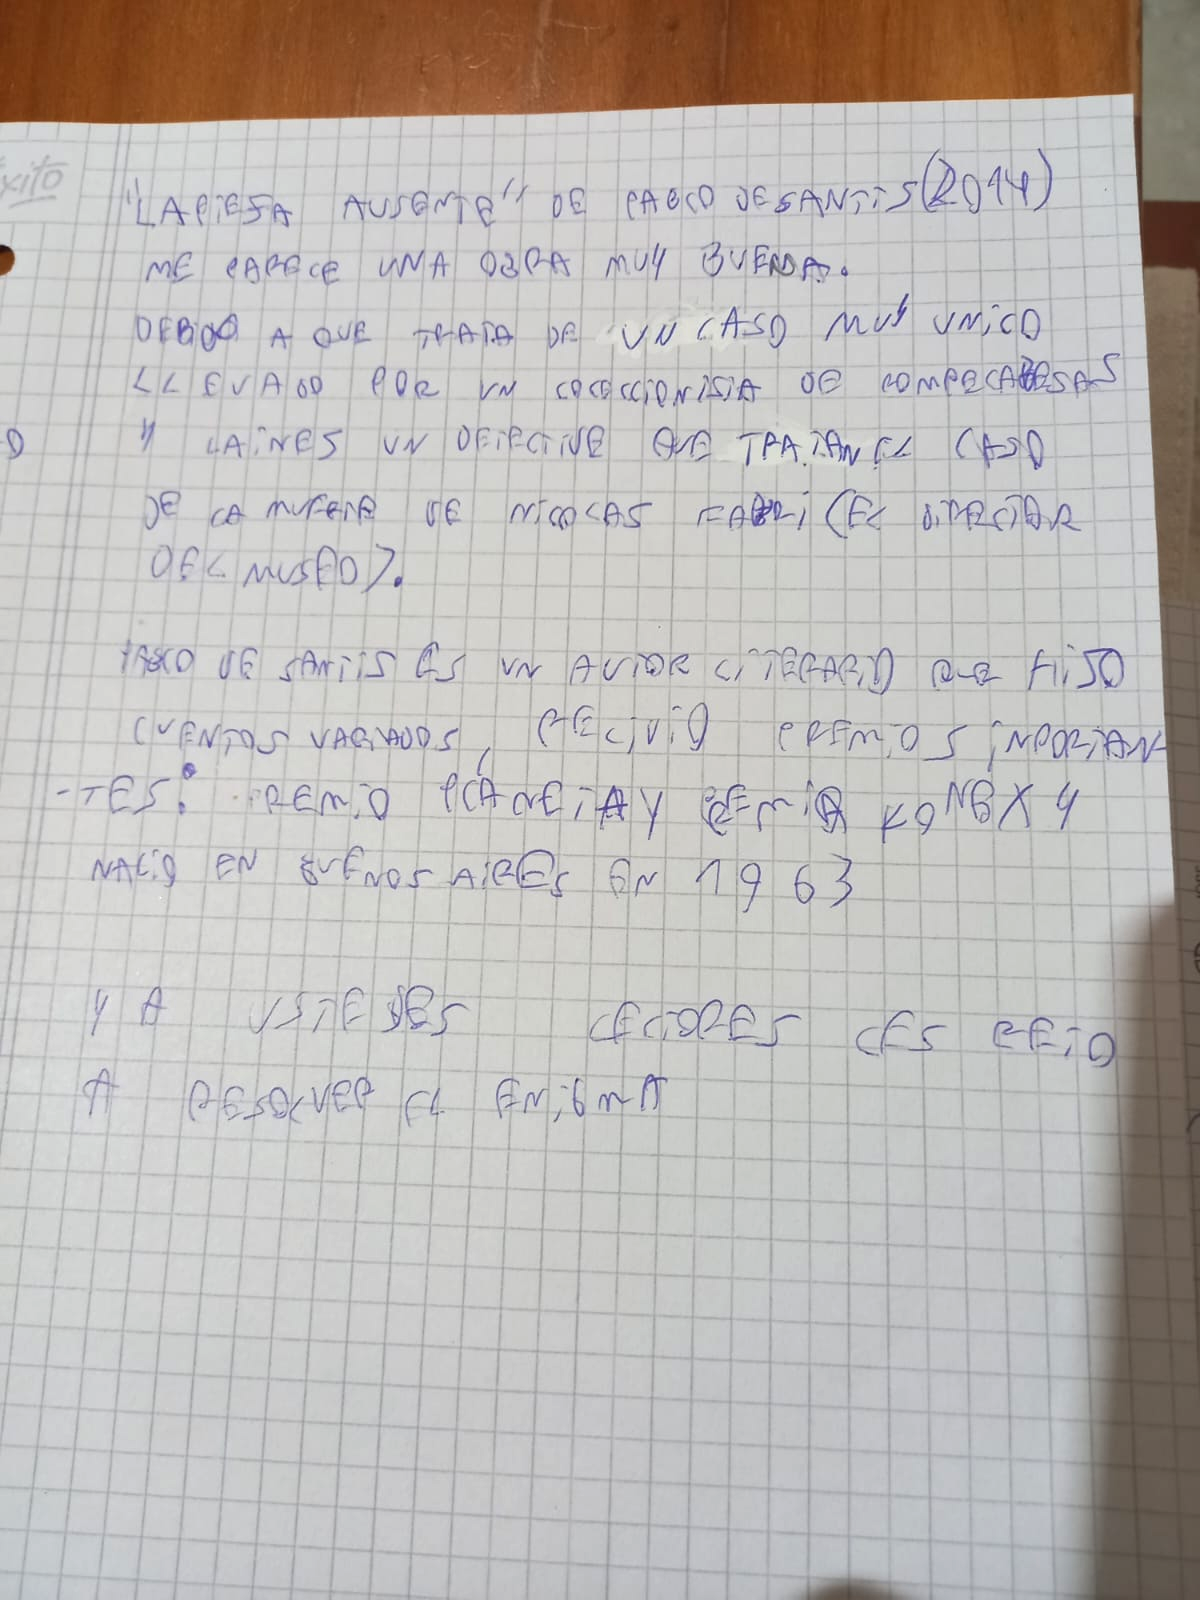 éxito
"LA PIESA AUSENTE" DE PABLO DE SANTIS (2014)
ME PARECE UNA OBRA MUY BUENA.
DEBIDO A QUE TRATA DE UN CASO MUY UNICO
LLEVADO POR UN COLECCIONISTA DE COMPECABESAS
Y LAINES UN DETECTIVE QUE TRATAN EL CASO
DE LA MUERTE DE NICOLAS FABRI (EL DIRECTOR
DEL MUSEO).
PABLO DE SANTIS ES UN AUTOR LITERARIO QUE HISO
CUENTOS VARIADOS, RECIVIO PREMIOS INPORTAN-
-TES: PREMIO PLANETA Y PREMIO KONEX Y
NACIO EN BUENOS AIRES EN 1963
Y A USTEDES LECTORES LES RETO
A RESOLVER EL ENIGMA